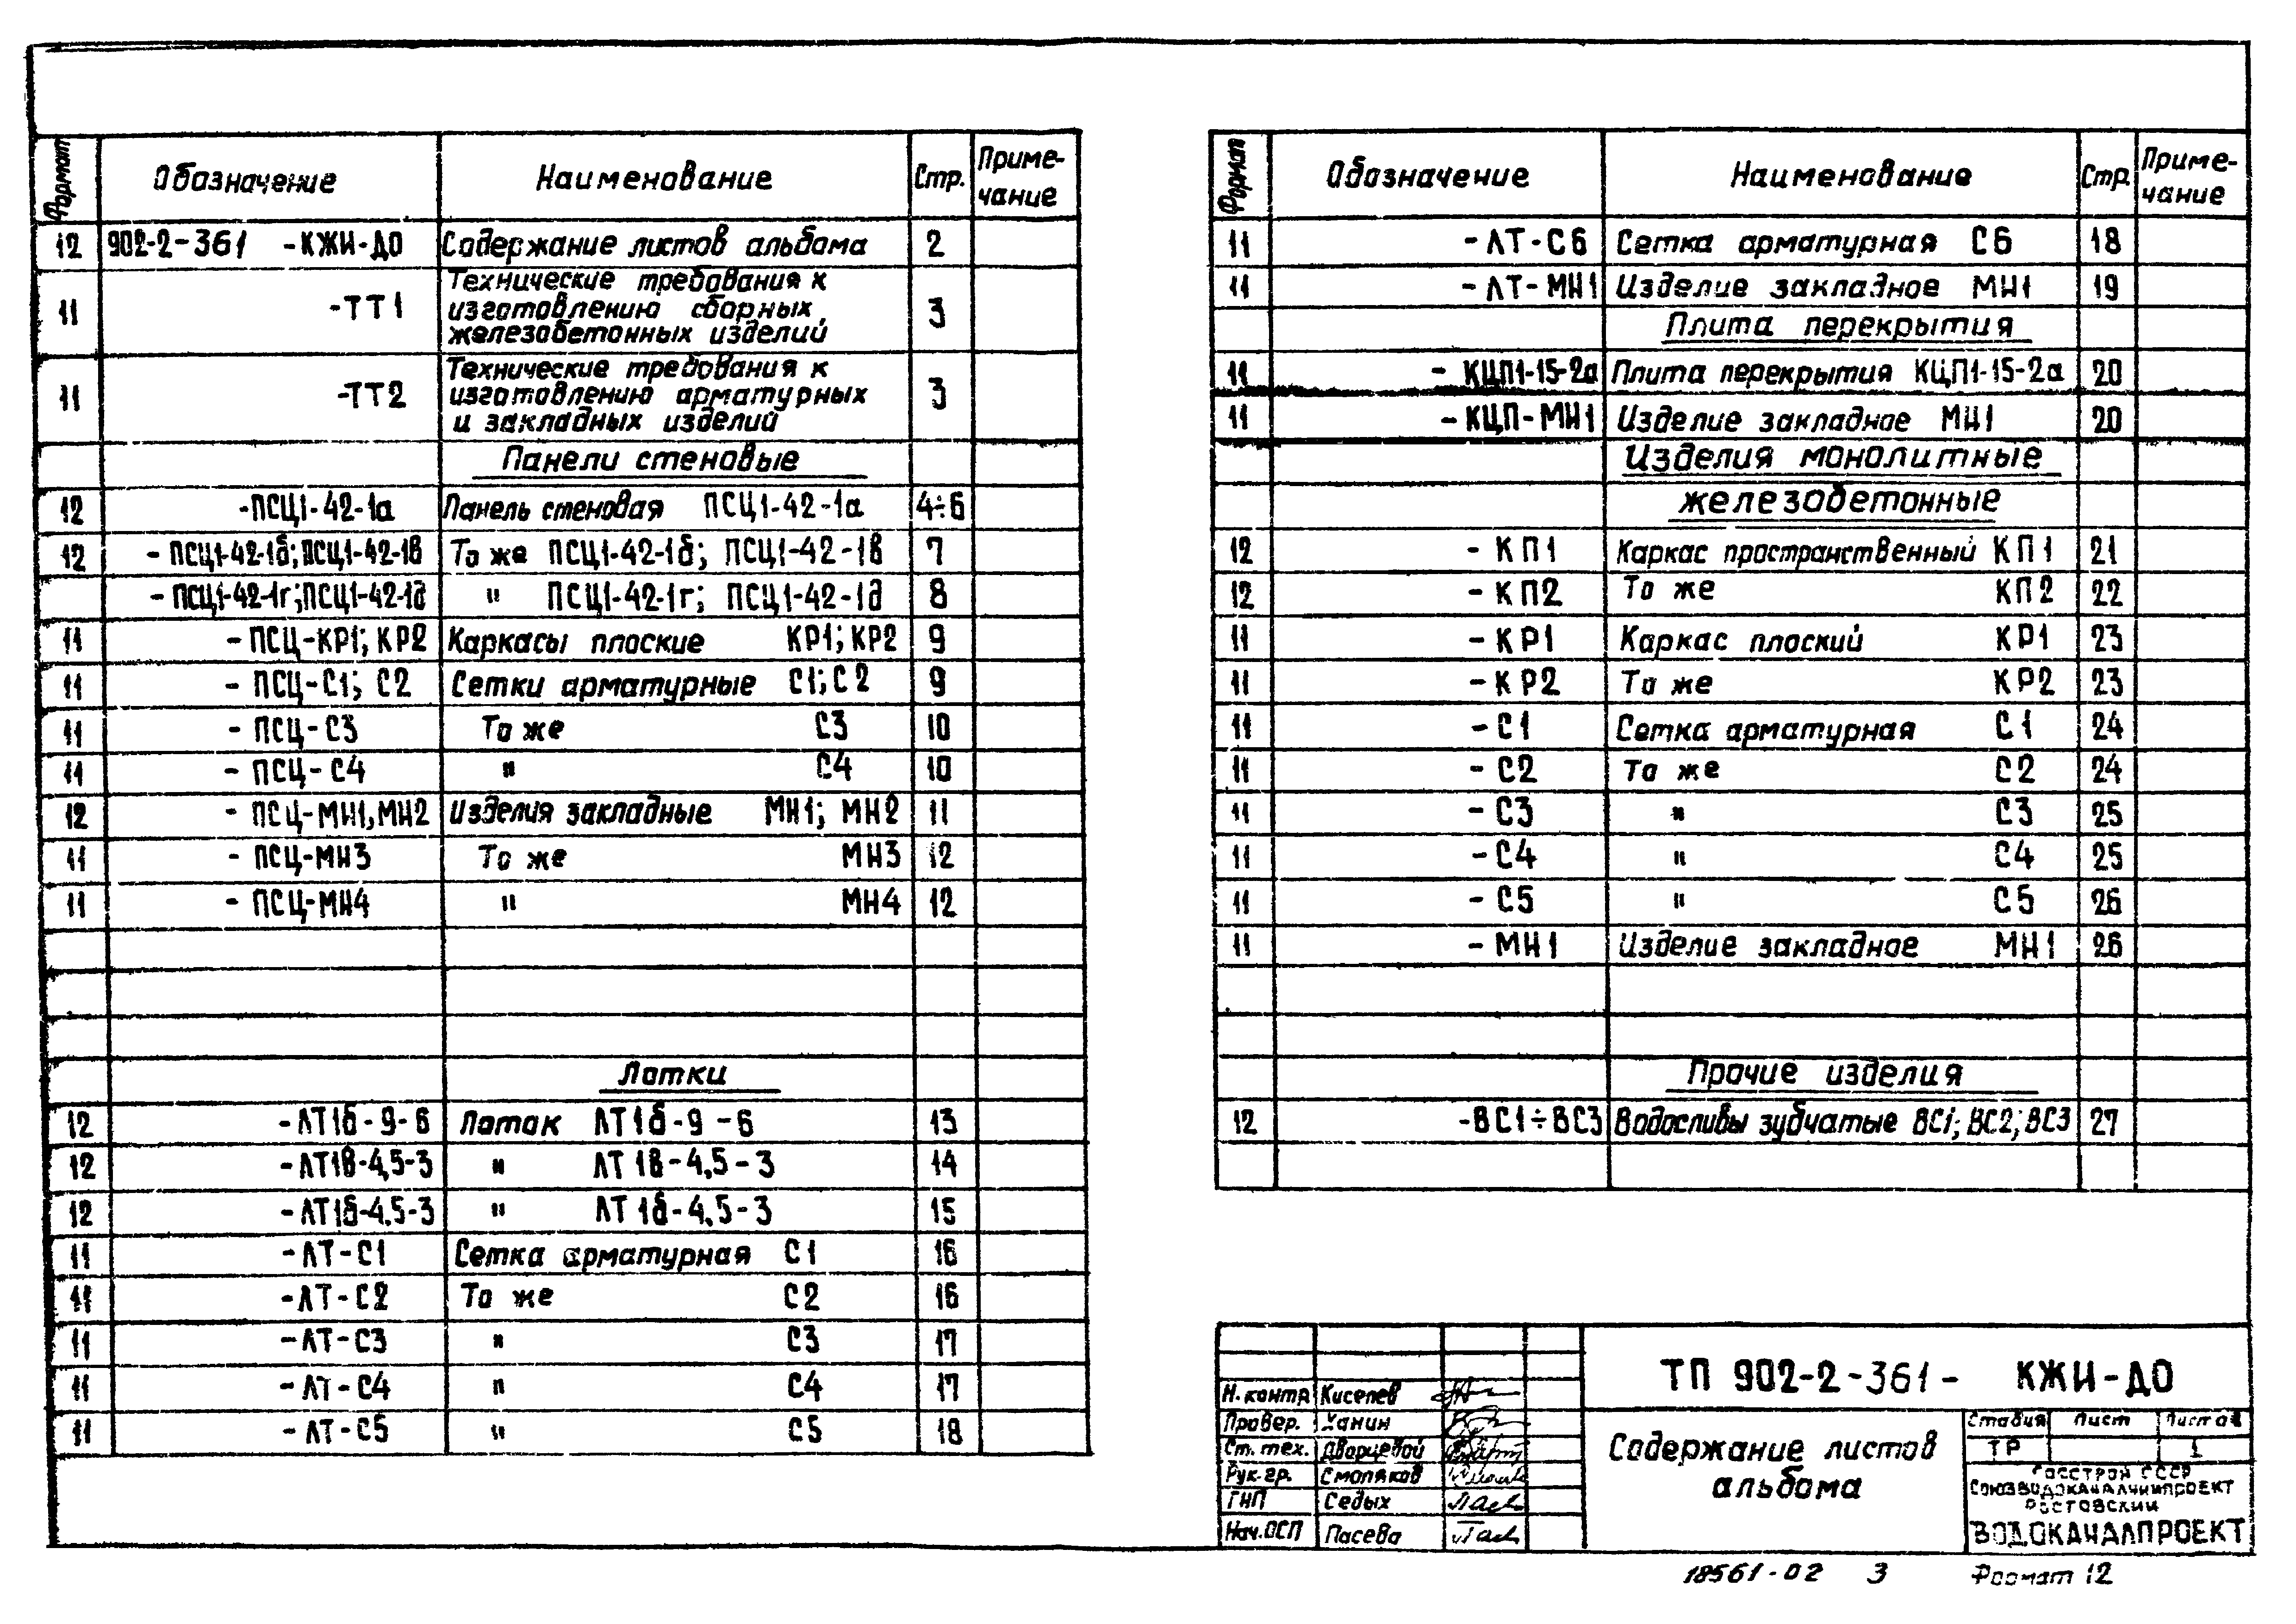 Формат Обозначение Наименование Стр. Приме-
чание
12 902-2-361 -КЖИ-ДО Содержание листов альбома 2
11 -ТТ1 Технические требования к
изготовлению сборных
железобетонных изделий 3
11 -ТТ2 Технические требования к
изготовлению арматурных
и закладных изделий 3
Панели стеновые
12 -ПСЦ1-42-1а Панель стеновая ПСЦ1-42-1а 4÷6
12 - ПСЦ1-42-1б; ПСЦ1-42-1в То же ПСЦ1-42-1б; ПСЦ1-42-1в 7
- ПСЦ1-42-1г; ПСЦ1-42-1д " ПСЦ1-42-1г; ПСЦ1-42-1д 8
11 - ПСЦ-КР1; КР2 Каркасы плоские КР1; КР2 9
11 - ПСЦ-С1; С2 Сетки арматурные С1; С2 9
11 - ПСЦ-С3 То же С3 10
11 - ПСЦ-С4 " С4 10
12 - ПСЦ-МН1, МН2 Изделия закладные МН1; МН2 11
11 - ПСЦ-МН3 То же МН3 12
11 - ПСЦ-МН4 " МН4 12
Лотки
12 -ЛТ1б-9-6 Лоток ЛТ1б-9-6 13
12 -ЛТ1в-4,5-3 " ЛТ1в-4,5-3 14
12 -ЛТ1б-4.5-3 " ЛТ1б-4.5-3 15
11 -ЛТ-С1 Сетка арматурная С1 16
11 -ЛТ-С2 То же С2 16
11 -ЛТ-С3 " С3 17
11 -ЛТ-С4 " С4 17
11 -ЛТ-С5 " С5 18
Формат Обозначение Наименование Стр. Приме-
чание
11 -ЛТ-С6 Сетка арматурная С6 18
11 -ЛТ-МН1 Изделие закладное МН1 19
Плита перекрытия
11 - КЦП1-15-2а Плита перекрытия КЦП1-15-2а 20
11 -КЦП-МН1 Изделие закладное МН1 20
Изделия монолитные
железобетонные
12 -КП1 Каркас пространственный КП1 21
12 -КП2 То же КП2 22
11 -КР1 Каркас плоский КР1 23
11 -КР2 То же КР2 23
11 -С1 Сетка арматурная С1 24
11 -С2 То же С2 24
11 -С3 " С3 25
11 -С4 " С4 25
11 -С5 " С5 26
11 -МН1 Изделие закладное МН1 26
Прочие изделия
12 -ВС1÷ВС3 Водосливы зубчатые ВС1; ВС2; ВС3 27
ТП 902-2-361- КЖИ-ДО
Н. контр. Киселев
Провер. Ханин
Ст. тех. Дворцевой
Рук. гр. Смоляков
ГИП Седых
Нач. ОСП Пасева
Содержание листов
альбома
Стадия Лист Листов
ТР 1
ГОССТРОЙ СССР
СОЮЗВОДОКАНАЛНИИПРОЕКТ
РОСТОВСКИЙ
ВОДОКАНАЛПРОЕКТ
18561-02 3 Формат 12